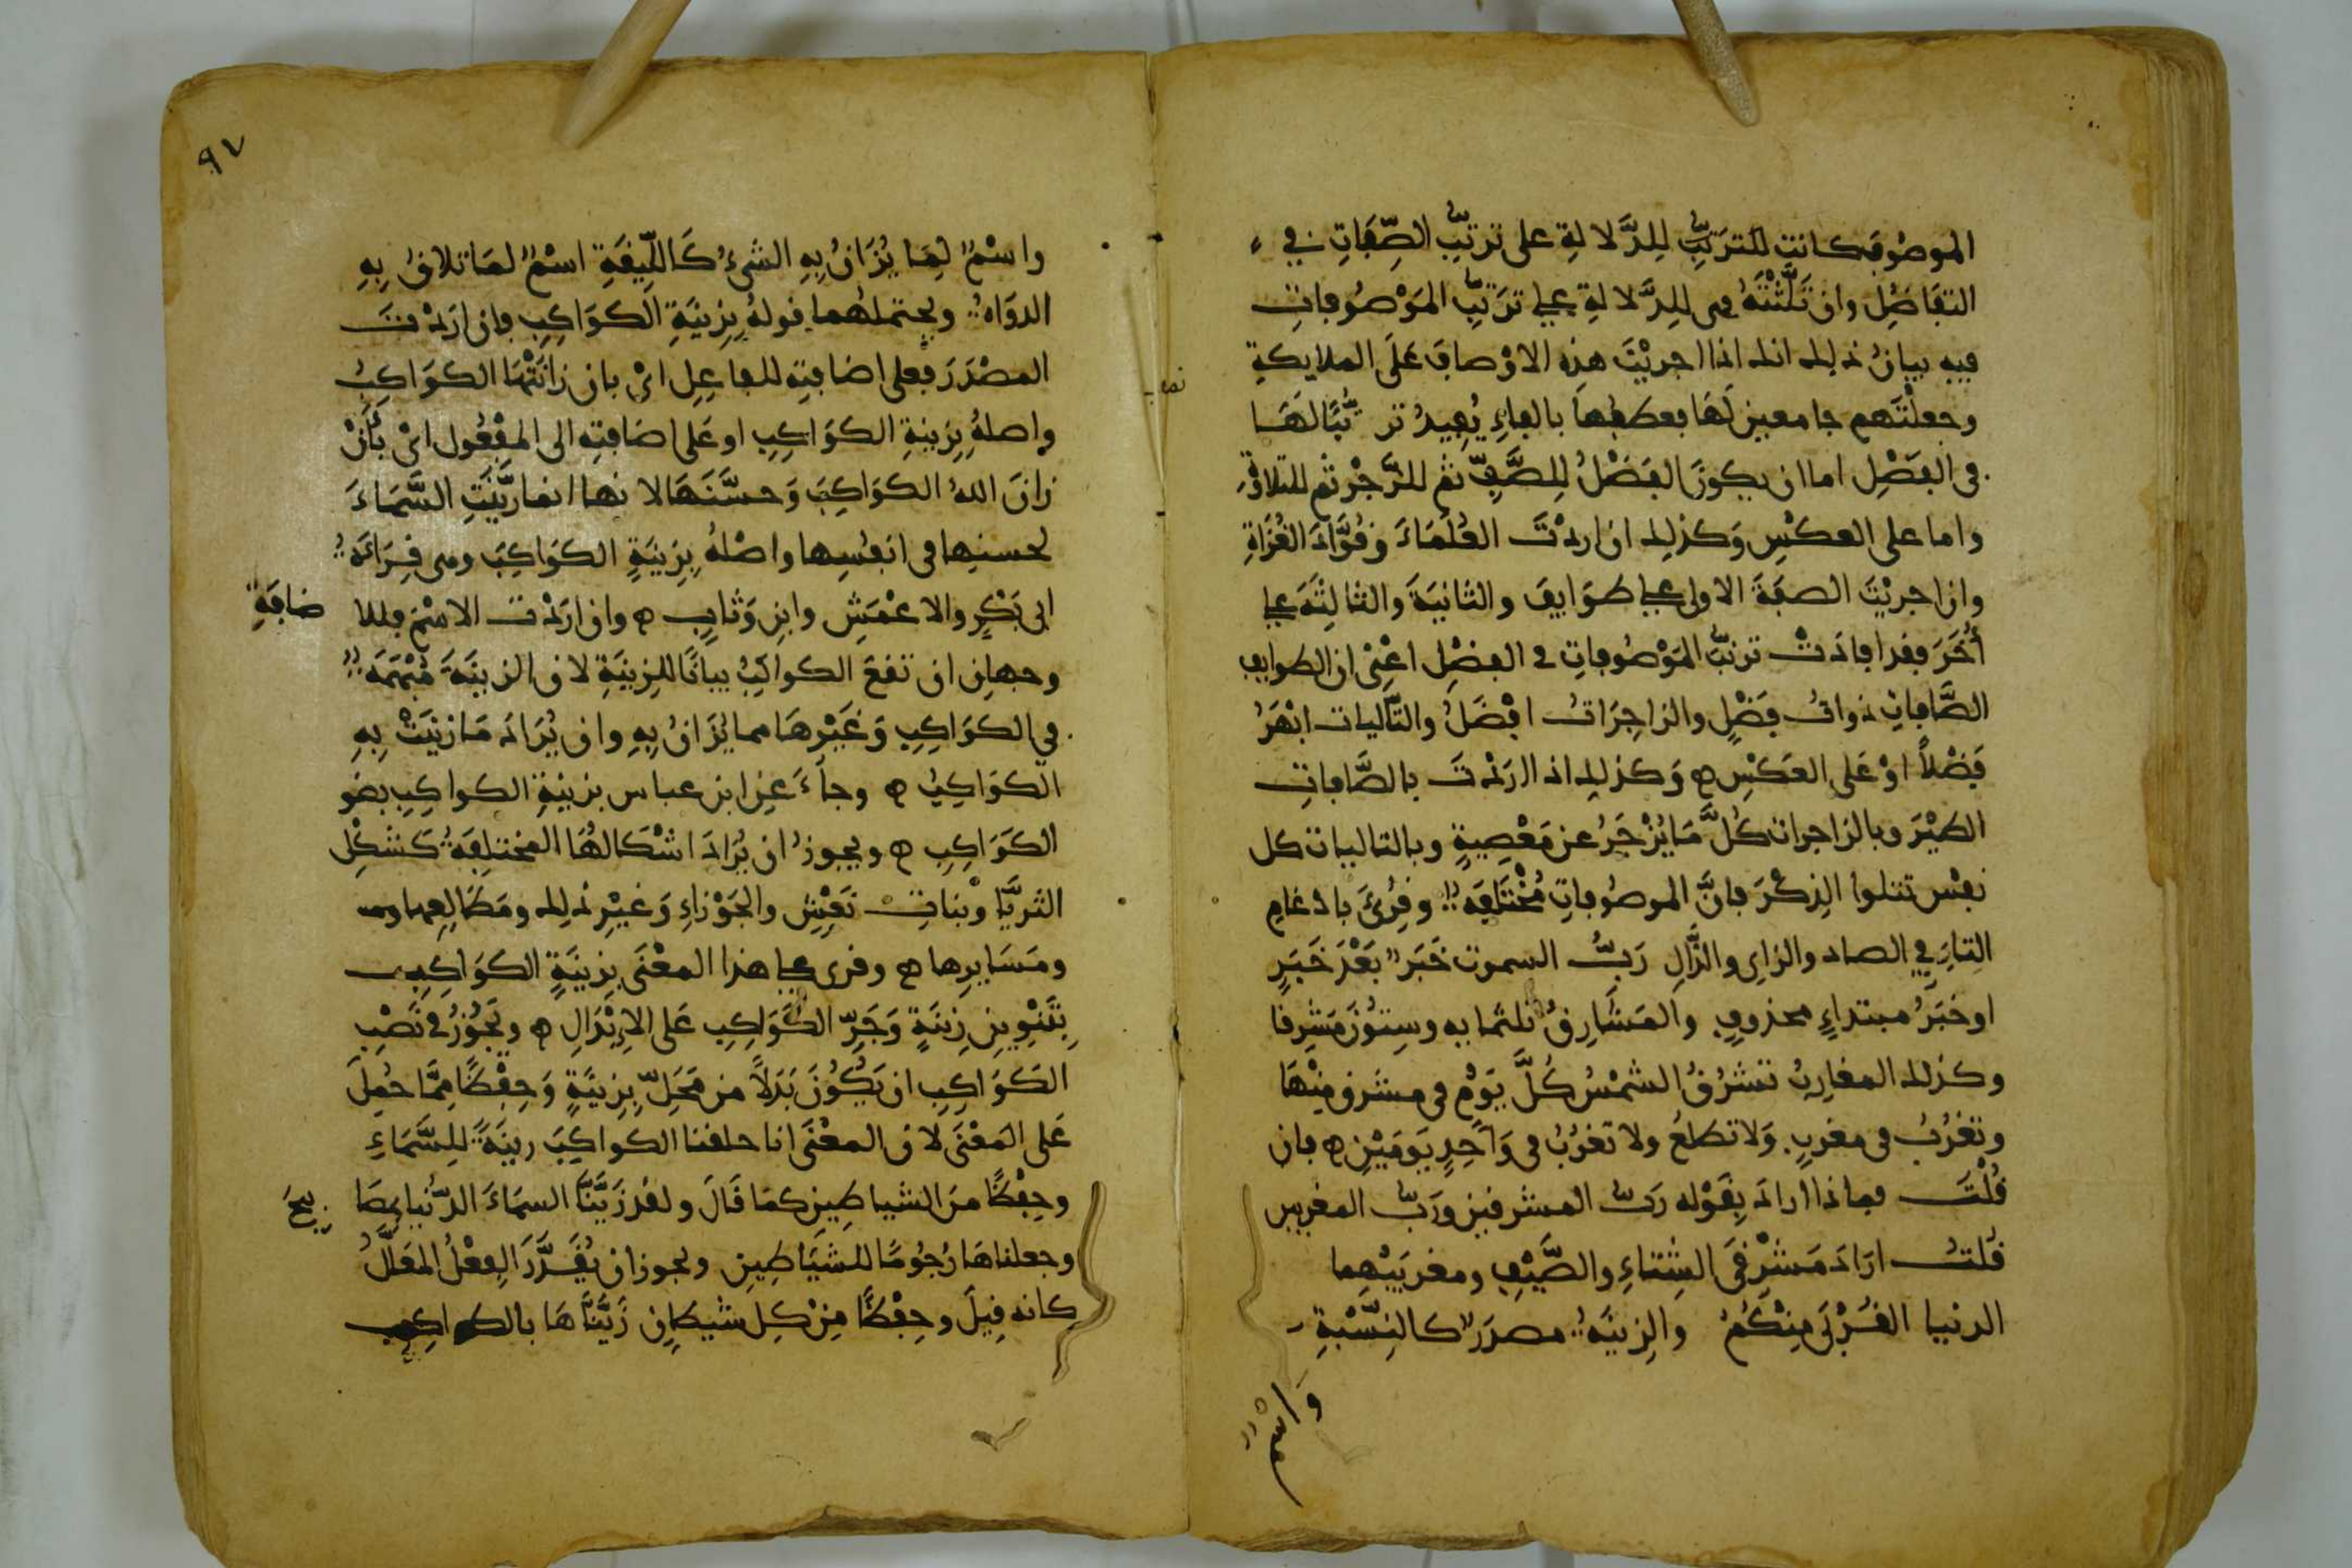 الموصُوف كانت للترَتُّبِ لِلدَّلالةِ على ترتّبِ الصِّفَاتِ في
التفَاضُلِ وان ثَلَّثْتَهُ فهى لِلدَّلالةِ على ترَتّبِ المَوْصُوفات
فيه بيانُ ذلك انك اذا اجريْتَ هذِه الاوْصافَ عَلَى الملايكةِ
وجعلْتَهم جامعين لَهَا فعطفُها بالفاءِ يُفِيدُ ترتُّبًا لَهَا
فى الفَضْلِ اما ان يكونَ الفَضْلُ لِلصَّفِّ ثم للزَّجْرِ ثم للتلاوَةِ
واما على العكسِ وَكذلك ان اردْتَ العُلَمَاءَ وقُوَّادَ الغُزَاةِ
وان اجريْتَ الصفَةَ الاولى على طوَايفَ والثانيَةَ والثالثَةَ على
أُخَرَ فقد افادَتْ ترتّبَ المَوْصُوفاتِ في الفضْلِ اعْنِى ان الطوايف
الصَّافاتِ ذواتُ فَضْلٍ والزاجِرَاتُ افْضَلُ والتّاليات ابْهَرُ
فَضْلاً اوْ عَلى العَكسِ ه وَكذلك اذا اردْتَ بالصَّافاتِ
الطيْرَ وبالزاجرات كُلَّ مَا يُزْجَرُ عن مَعْصِيةٍ وبالتاليات كل
نفْسٍ تتلوا الذِكْرَ فانَّ الموصُوفاتِ مُخْتَلِفَةٌ وقُرِئَ بادْغامِ
التاءِ في الصاد والزاى والذَّالِ رَبُّ السموت خَبَرٌ بَعْدَ خَبَرٍ
او خَبَرُ مبتداءٍ محذوفٍ والمَشَارِقُ ثلثماية وستُّونَ مَشرِقا
وكذلك المغارِبُ تشرُقُ الشمْسُ كُلَّ يَوْمٍ فى مشرقٍ مِنْهَا
وتغْرُبُ فى مغربٍ وَلا تطلعُ ولا تغرُبُ فى وَاحِدٍ يَومَيْنِ ه فان
قُلْتَ فماذا ارادَ بِقَوْله رَبّ المشرقين ورَبّ المغربين
قُلتُ ارَادَ مَشْرِقَىِ الشِتاءِ والصَّيْفِ ومغربَيْهِما
الدنيا القُرْبَى مِنْكُمْ والزِينَةُ مصدَرٌ كالنِسْبةِ
وَاسْمٌ
٩٧
واسْمٌ لِمَا يُزَانُ بِهِ الشىءُ كَاللِّيقَةِ اسْمٌ لمَا تلاقُ بِهِ
الدوَاةُ ويحتملهما قولُهُ بِزِينَةِ الكوَاكِبِ فان ارَدْتَ
المصْدَرَ فعلى اضافتِه للفاعِلِ اىْ بان زانَتْهَا الكوَاكِبُ
واصلُهُ بِزِينةٍ الكوَاكِبُ او عَلى اضافتِه الى المفْعُول اىْ بأنْ
زانَ اللهُ الكوَاكِبَ وَحسَّنَهَا لانها انما زيّنَتِ السَّمَاءَ
لحسنِها فى انفُسِها واصْلُهُ بِزِينَةٍ الكوَاكِبَ وهى قِرَاءَةُ
ابى بَكْرٍ والاعْمَشِ وابنِ وَثابٍ ه وان ارَدْت الاسْمَ فللاضافَةِ
وجهانِ ان تقعَ الكواكِبُ بيانًا للزِينَةِ لان الزينَةَ مُبْهَمَةٌ
في الكوَاكِبِ وَغيْرِهَا مما يُزَانُ بِهِ وان يُرَادَ مَا زينَتْ بِهِ
الكوَاكِبُ ه وجاءَ عنِ ابن عباس بزينةِ الكواكِبِ بضو
الكوَاكِبِ ه ويجوزُ ان يُرَادَ اشْكالُهَا المختلِفةُ كَشكْلِ
الثريَّا وبنات نَعْشٍ والجَوْزاءِ وَغيْرِ ذلِك ومَطالِعِها
ومَسَايرِها ه وقرى على هذا المعْنَى بِزينَةٍ الكوَاكِبِ
بِتَنْوِينِ زِينَةٍ وَجَرِّ الكَوَاكِبِ عَلى الإبْدَالِ ه ويَجُوزُ في نَصْبِ
الكوَاكِبِ ان يَكُونَ بَدَلاً من مَحَلِّ بِزِينَةٍ وَحِفْظًا مِمَّا حُمِلَ
عَلى المَعْنَى لان المعْنَى انا خلقنا الكواكِبَ زينَةً لِلسَّمَاءِ
وحِفْظًا منَ الشياطِينِ كمَا قَالَ ولقد زَيَّنَّا السمَاءَ الدّنيا بمصَابيحَ
وجعلناهَا رُجُومًا للشيَاطِينِ ويجوز ان يُقَدَّرَ الفِعْلُ المعَلَّلُ
كانه قِيلَ وحِفْظًا مِنْ كلِ شيطانٍ زَيَّنَّاهَا بالكواكِبِ